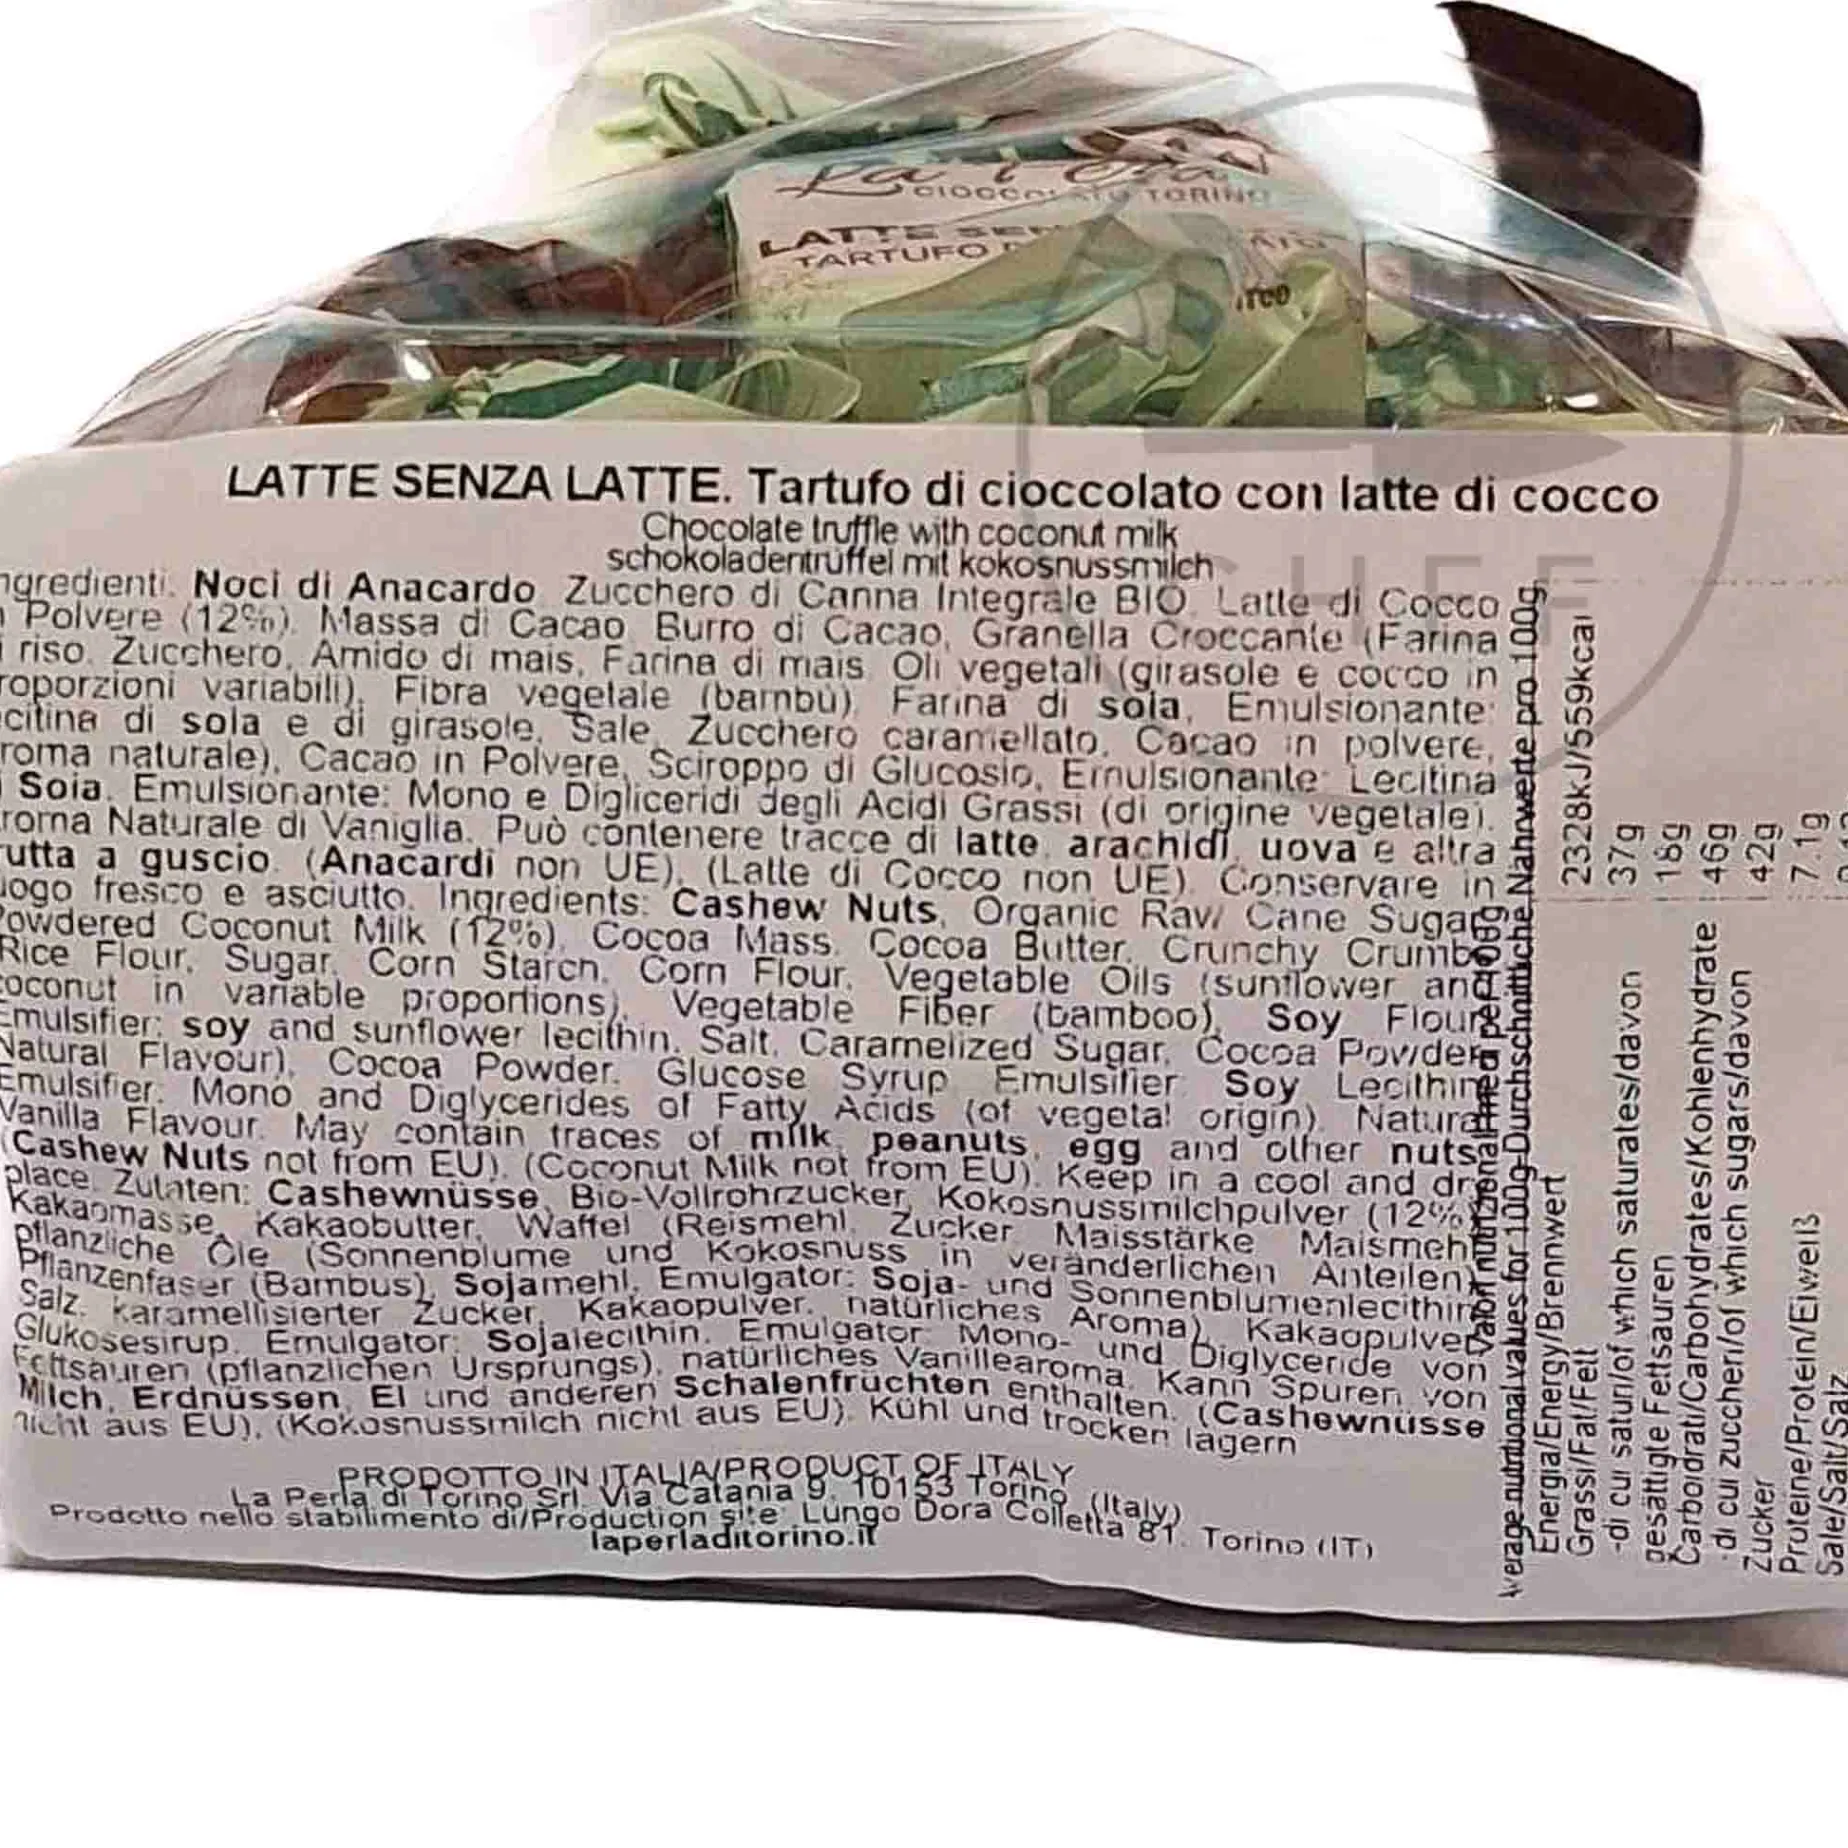 CIOCCOLATO TORINO
LATTE
TARTUFO
LATTE SENZA LATTE. Tartufo di cioccolato con latte di cocco
Chocolate truffle with coconut milk
schokoladentrüffel mit kokosnussmilch
ngredienti. Noci di Anacardo Zucchero di Canna Integrale BIO. Latte di Cocco
Polvere (12%). Massa di Cacao Burro di Cacao, Granella Croccante (Farina
riso. Zucchero, Amido di mais, Farina di mais Oli vegetali (girasole e cocco in
roporzioni variabili), Fibra vegetale (bambù) Farina di soia, Emulsionante:
citina di soia e di girasole, Sale, Zucchero caramellato, Cacao in polvere,
roma naturale), Cacao in Polvere, Sciroppo di Glucosio, Emulsionante: Lecitina
Soia. Emulsionante: Mono e Digliceridi degli Acidi Grassi (di origine vegetale).
roma Naturale di Vaniglia. Può contenere tracce di latte, arachidi, uova e altra
rutta a guscio. (Anacardi non UE), (Latte di Cocco non UE). Conservare in
uogo fresco e asciutto. Ingredients: Cashew Nuts, Organic Raw Cane Sugar,
Powdered Coconut Milk (12%), Cocoa Mass. Cocoa Butter, Crunchy Crumb
Rice Flour, Sugar, Corn Starch, Corn Flour, Vegetable Oils (sunflower and
coconut in variable proportions), Vegetable Fiber (bamboo), Soy Flour
Emulsifier: soy and sunflower lecithin, Salt, Caramelized Sugar, Cocoa Powder
Natural Flavour), Cocoa Powder. Glucose Syrup Emulsifier: Soy Lecithin
Emulsifier: Mono and Diglycerides of Fatty Acids (of vegetal origin). Natural
Vanilla Flavour. May contain traces of milk, peanuts, egg and other nuts
(Cashew Nuts not from EU). (Coconut Milk not from EU). Keep in a cool and dry
place. Zutaten: Cashewnüsse, Bio-Vollrohrzucker, Kokosnussmilchpulver (12%)
Kakaomasse, Kakaobutter, Waffel (Reismehl, Zucker Maisstärke Maismehl
pflanzliche Öle (Sonnenblume und Kokosnuss in veränderlichen Anteilen)
Pflanzenfaser (Bambus), Sojamehl, Emulgator: Soja- und Sonnenblumenlecithin
Salz. karamellisierter Zucker, Kakaopulver, natürliches Aroma), Kakaopulver
Glukosesirup. Emulgator: Sojalecithin. Emulgator: Mono- und Diglyceride von
Fettsäuren (pflanzlichen Ursprungs), natürliches Vanillearoma. Kann Spuren von
Milch, Erdnüssen, EI und anderen Schalenfrüchten enthalten. (Cashewnüsse
nicht aus EU), (Kokosnussmilch nicht aus EU). Kühl und trocken lagern
PRODOTTO IN ITALIA/PRODUCT OF ITALY
La Perla di Torino Srl. Via Catania 9, 10153 Torino (Italy)
Prodotto nello stabilimento di/Production site: Lungo Dora Colletta 81, Torino (IT)
laperladitorino.it
Valori nutrizionali medi per 100g
Average nutritional values for 100g-Durchschnittliche Nahrwerte pro 100g
Energia/Energy/Brennwert 2328kJ/559kcal
Grassi/Fat/Fett 37g
-di cui saturi/of which saturates/davon
gesättigte Fettsäuren 18g
Carboidrati/Carbohydrates/Kohlenhydrate 46g
-di cui zuccheri/of which sugars/davon
Zucker 42g
Proteine/Protein/Eiweiß 7.1g
Sale/Salt/Salz
CHEF